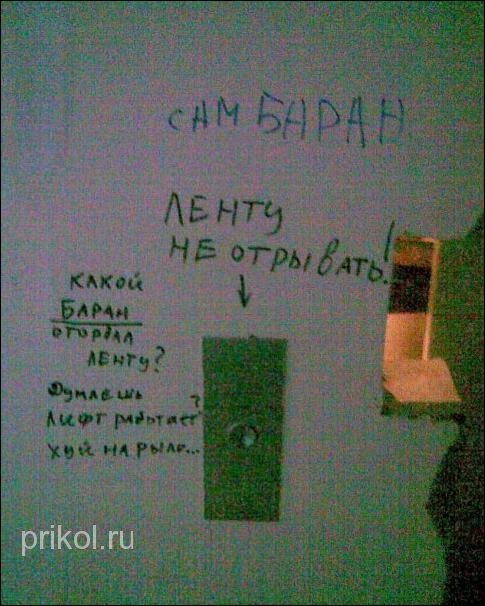 сам БАРАН
ЛЕНТУ
НЕ ОТРЫВАТЬ!
КАКОЙ
БАРАН
оторвал
ЛЕНТУ?
Думаешь
Лифт работает?
хуй на рыле...
prikol.ru